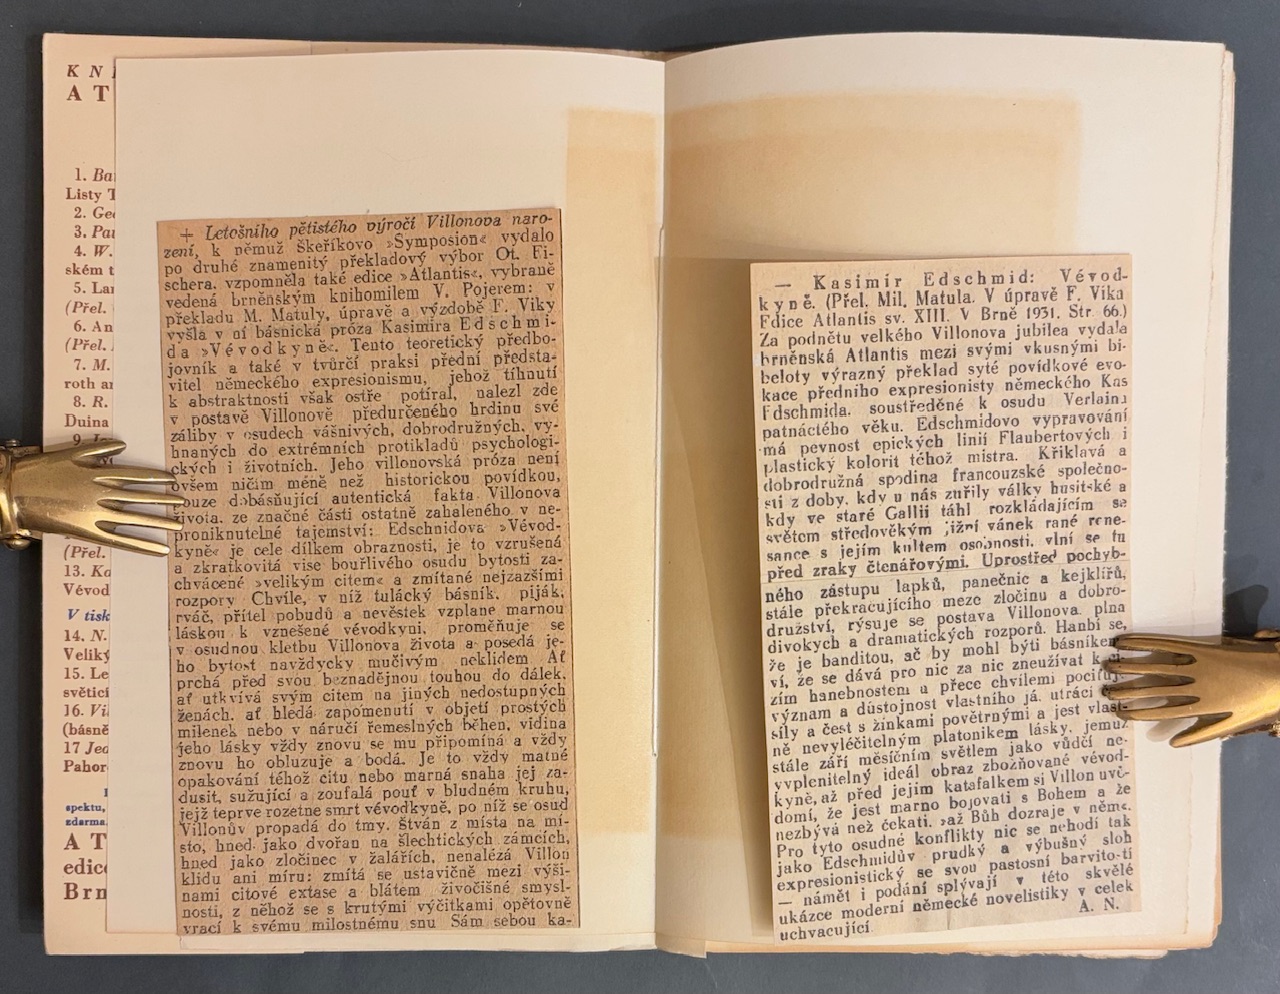 K N
A T
1. Ba
Listy T
2. Geo
3. Pau
4. W.
ském t
5. Lar
(Přel.
6. An
(Přel.
7. M.
roth ar
8. R.
Duina
9.
(Přel.
13. Ka
Vévod
V tisk
14. N.
Veliký
15. Le
světici
16. Vi
(básně
17 Jed
Pahor
spektu,
zdarma.
A T
edice
Brn
+ Letošního pětistého výročí Villonova naro-
zení, k němuž Škeříkovo »Symposion« vydalo
po druhé znamenitý překladový výbor Ot. Fi-
schera, vzpomněla také edice »Atlantis«, vybraně
vedená brněnským knihomilem V. Pojerem: v
překladu M. Matuly, úpravě a výzdobě F. Viky
vyšla v ní básnická próza Kasimira Edschmi-
da »Vévodkyně«. Tento teoretický předbo-
jovník a také v tvůrčí praksi přední předsta-
vitel německého expresionismu, jehož tíhnutí
k abstraktnosti však ostře potíral, nalezl zde
v postavě Villonově předurčeného hrdinu své
záliby v osudech vášnivých, dobrodružných, vy-
hnaných do extrémních protikladů psychologi-
ckých i životních. Jeho villonovská próza není
ovšem ničím méně než historickou povídkou,
pouze dobásňující autentická fakta Villonova
života, ze značné části ostatně zahaleného v ne-
proniknutelné tajemství: Edschnidova »Vévod-
kyně« je cele dílkem obraznosti, je to vzrušená
a zkratkovitá vise bouřlivého osudu bytosti za-
chvácené »velikým citem« a zmítané nejzazšími
rozpory Chvíle, v níž tulácký básník, piják,
rváč, přítel pobudů a nevěstek vzplane marnou
láskou k vznešené vévodkyni, proměňuje se
v osudnou kletbu Villonova života a posedá je-
ho bytost navždycky mučivým neklidem Ať
prchá před svou beznadějnou touhou do dálek,
ať utkvívá svým citem na jiných nedostupných
ženách, ať hledá zapomenutí v objetí prostých
milenek nebo v náručí řemeslných běhen, vidina
jeho lásky vždy znovu se mu připomíná a vždy
znovu ho obluzuje a bodá. Je to vždy matné
opakování téhož citu nebo marná snaha jej za-
dusit, sužující a zoufalá pouť v bludném kruhu,
jejž teprve rozetne smrt vévodkyně, po níž se osud
Villonův propadá do tmy. Štván z místa na mí-
sto, hned jako dvořan na šlechtických zámcích,
hned jako zločinec v žalářích, nenalézá Villon
klidu ani míru: zmítá se ustavičně mezi výši-
nami citové extase a blátem živočišné smysl-
nosti, z něhož se s krutými výčitkami opětovně
vrací k svému milostnému snu Sám sebou ka-
— Kasimir Edschmid: Vévod-
kyně. (Přel. Mil. Matula. V úpravě F. Vika
Edice Atlantis sv. XIII. V Brně 1931. Str. 66.)
Za podnětu velkého Villonova jubilea vydala
brněnská Atlantis mezi svými vkusnými bi-
beloty výrazný překlad syté povídkové evo-
kace předního expresionisty německého Kas
Edschmida, soustředěné k osudu Verlaina
patnáctého věku. Edschmidovo vypravování
má pevnost epických linií Flaubertových i
plastický kolorit téhož mistra. Křiklavá a
dobrodružná spodina francouzské společno-
sti z doby, kdy u nás zuřily války husitské a
kdy ve staré Gallii táhl rozkládajícím se
světem středověkým jižní vánek rané rene-
sance s jejím kultem osobnosti, vlní se tu
před zraky čtenářovými. Uprostřed pochyb-
ného zástupu lapků, panečnic a kejklířů,
stále překracujícího meze zločinu a dobro-
družství, rýsuje se postava Villonova plna
divokých a dramatických rozporů. Hanbí se,
že je banditou, ač by mohl býti básníkem,
ví, že se dává pro nic za nic zneužívat k
zím hanebnostem a přece chvílemi pociťuj-
význam a důstojnost vlastního já, utrácí
síly a čest s žínkami povětrnými a jest vlast-
ně nevyléčitelným platonikem lásky, jemuž
stále září měsíčním světlem jako vůdčí ne-
vyplenitelný ideál obraz zbožňované vévod-
kyně, až před jejím katafalkem si Villon uvě-
domí, že jest marno bojovati s Bohem a že
nezbývá než čekati, »až Bůh dozraje v něm«.
Pro tyto osudné konflikty nic se nehodí tak
jako Edschmidův prudký a výbušný sloh
expresionistický se svou pastosní barvitostí
— námět i podání splývají v této skvělé
ukázce moderní německé novelistiky v celek
uchvacující
A. N.